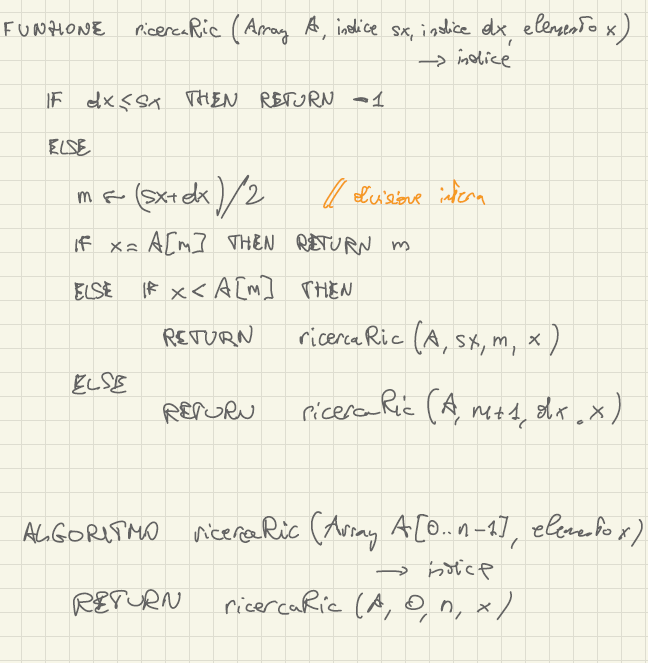 FUNZIONE ricercaRic (Array A, indice sx, indice dx, elemento x)
→ indice
IF dx ≤ sx THEN RETURN -1
ELSE
m ← (sx+dx)/2 // divisione intera
IF x = A[m] THEN RETURN m
ELSE IF x < A[m] THEN
RETURN ricercaRic (A, sx, m, x)
ELSE
RETURN ricercaRic (A, m+1, dx, x)
ALGORITMO ricercaRic (Array A[0..n-1], elemento x)
→ indice
RETURN ricercaRic (A, 0, n, x)